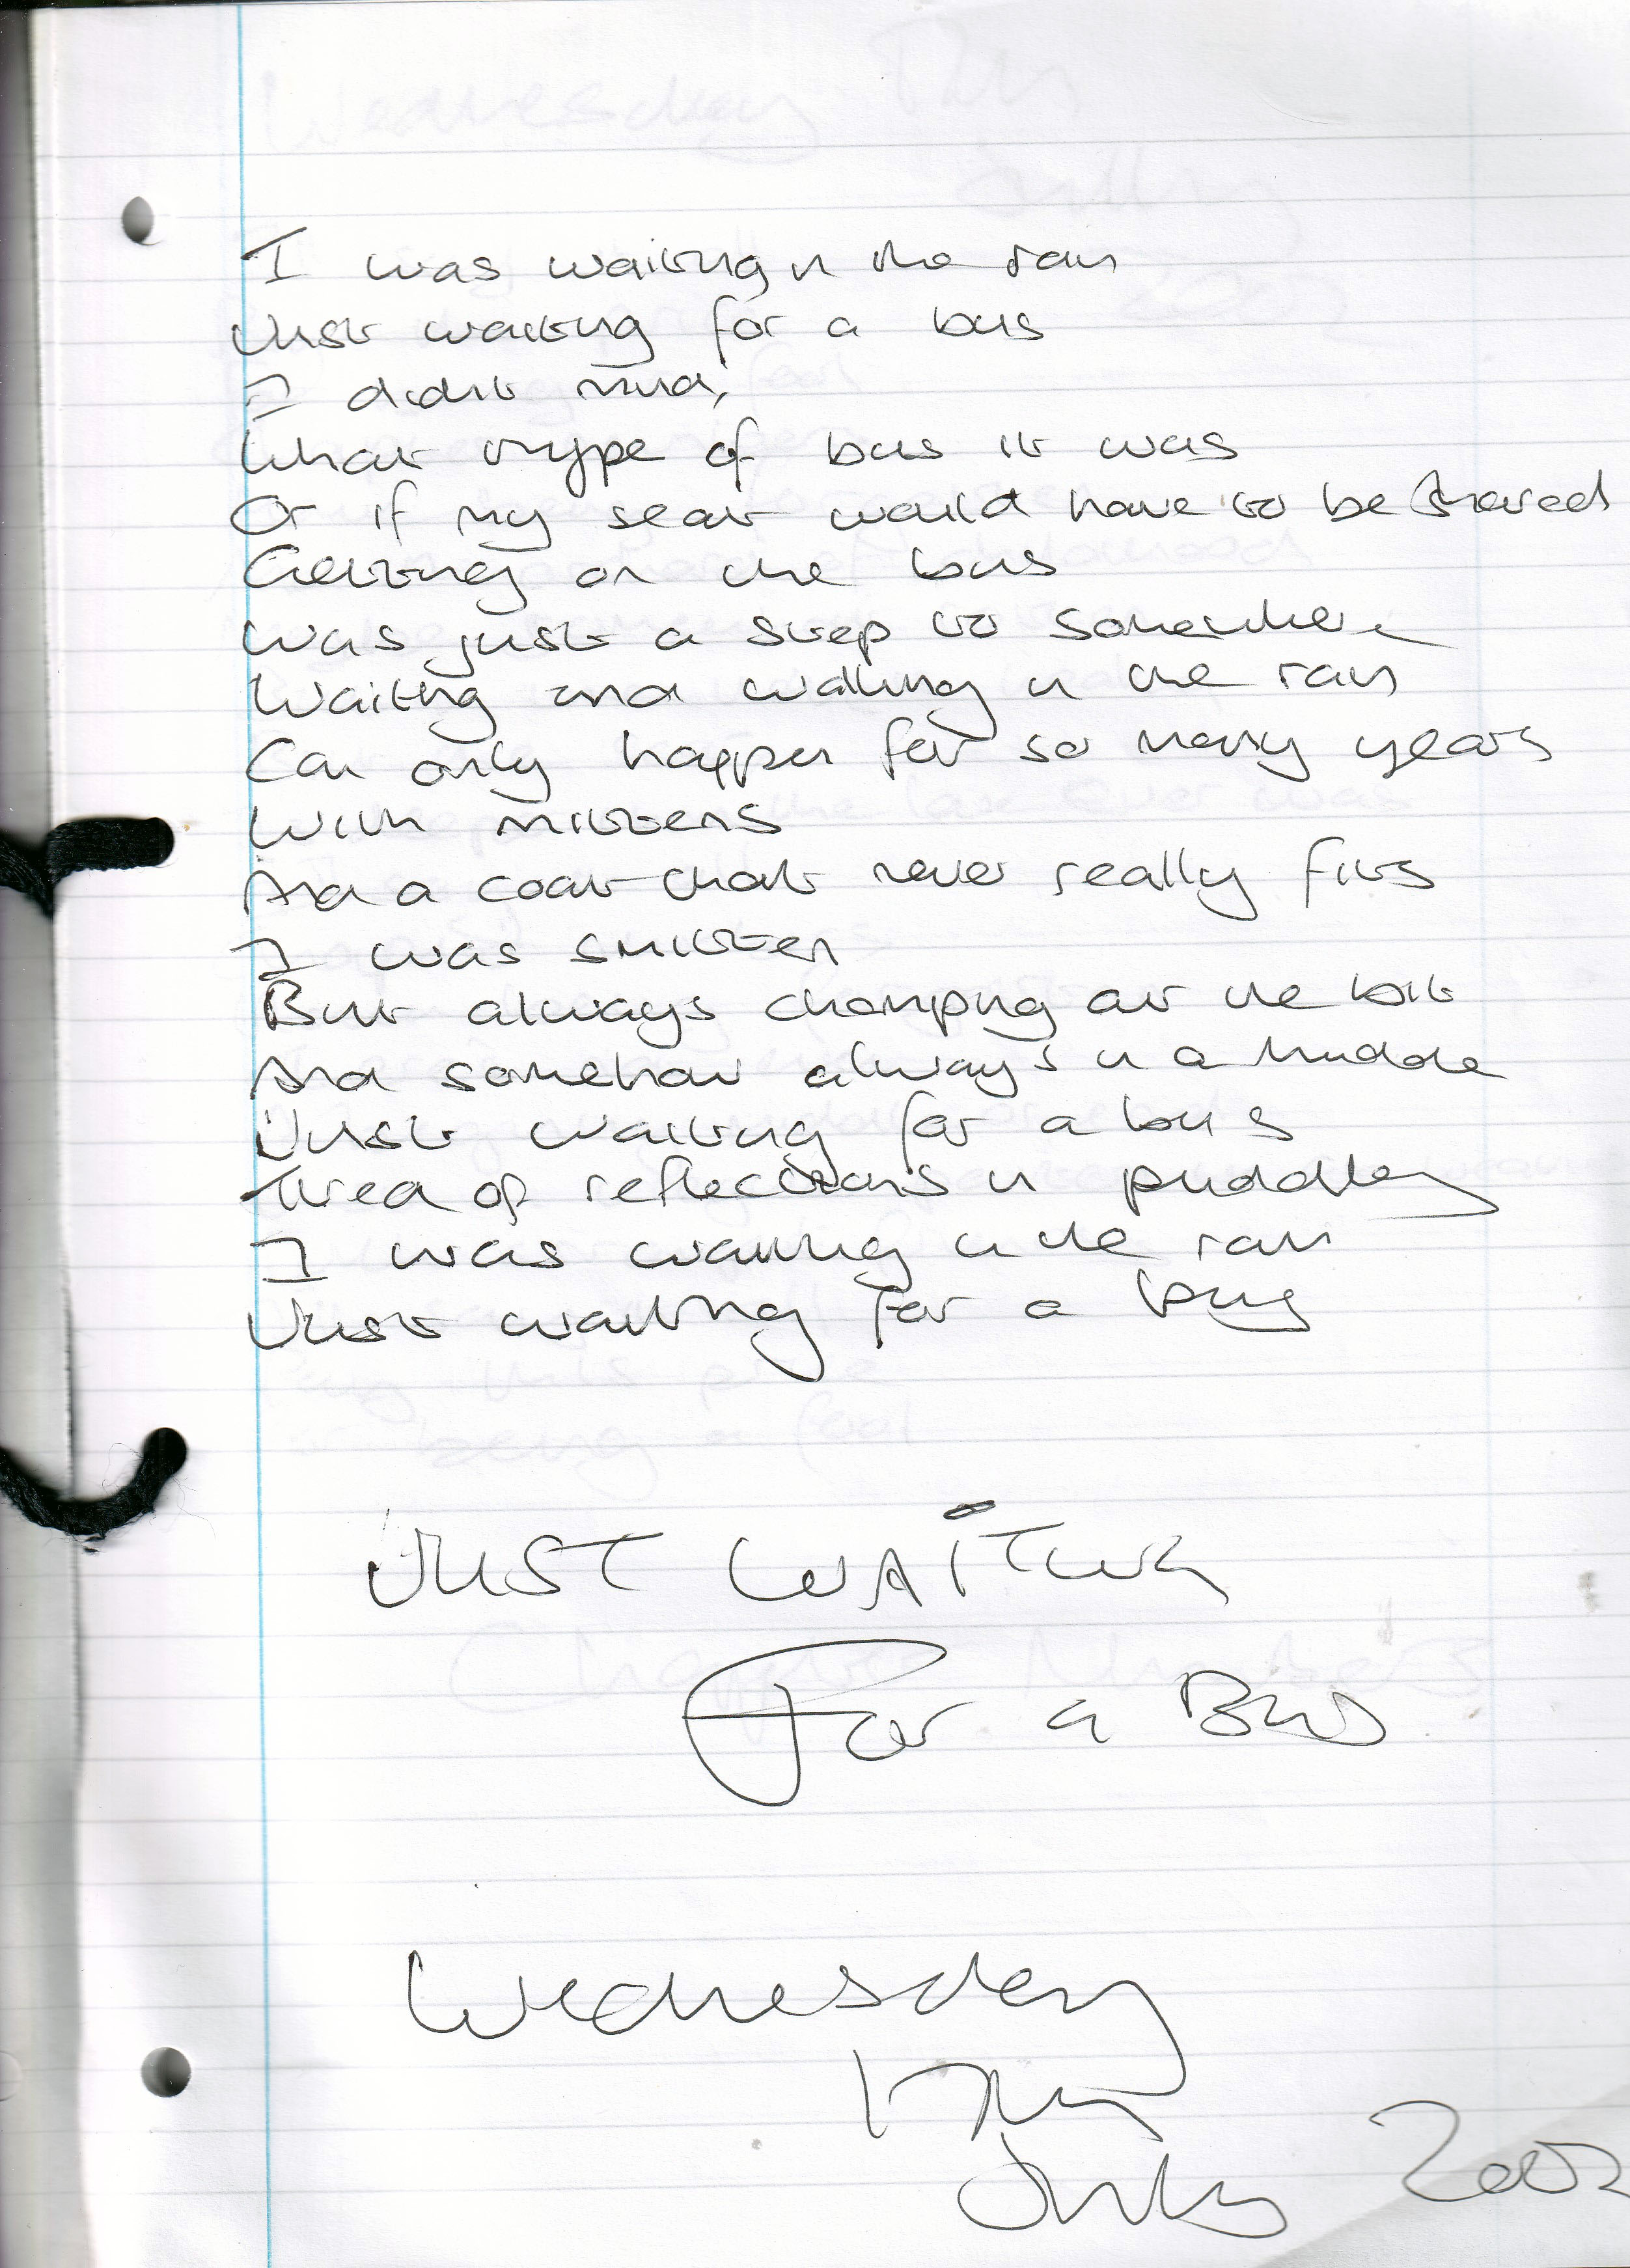 I was waiting in the rain
Just waiting for a bus
I didn't mind,
What type of bus it was
Or if my seat would have to be shared
Getting on the bus
Was just a step to somewhere
Waiting and walking in the rain
Can only happen for so many years
With mittens
And a coat that never really fits
I was smitten
But always chomping at the bit
And somehow always in a huddle
Just waiting for a bus
Tired of reflections in puddles
I was waiting in the rain
Just waiting for a bus
JUST WAITING
For a Bus
Wednesday
July 2002